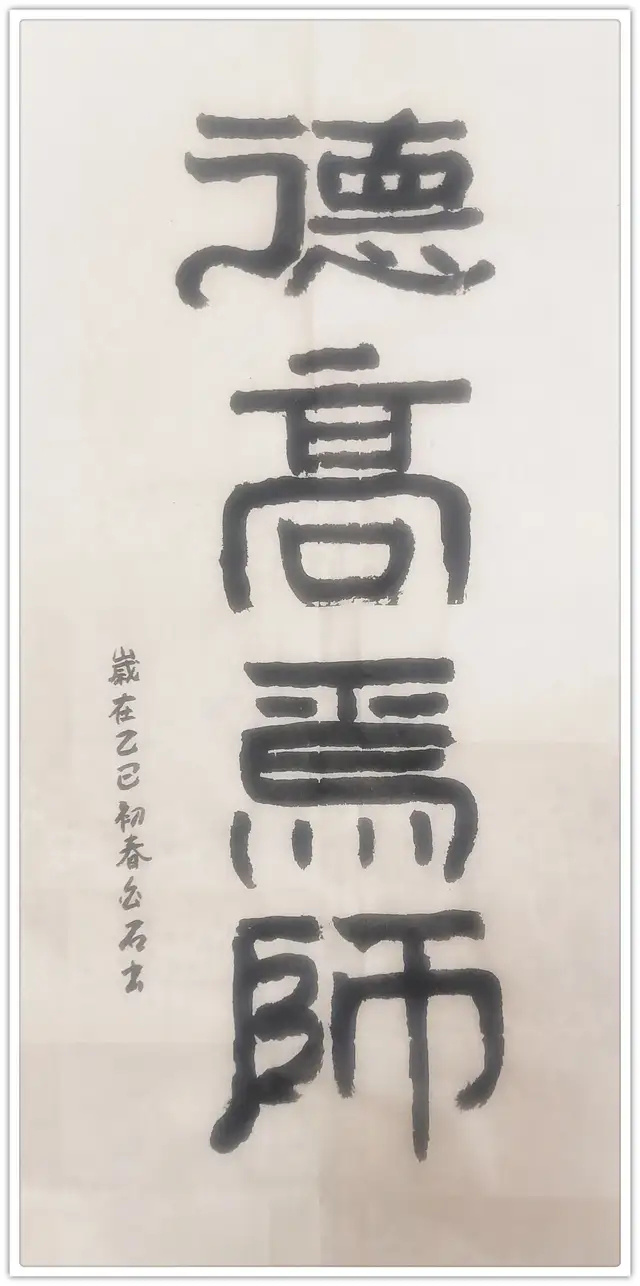 德高爲師
歲在乙巳初春石书